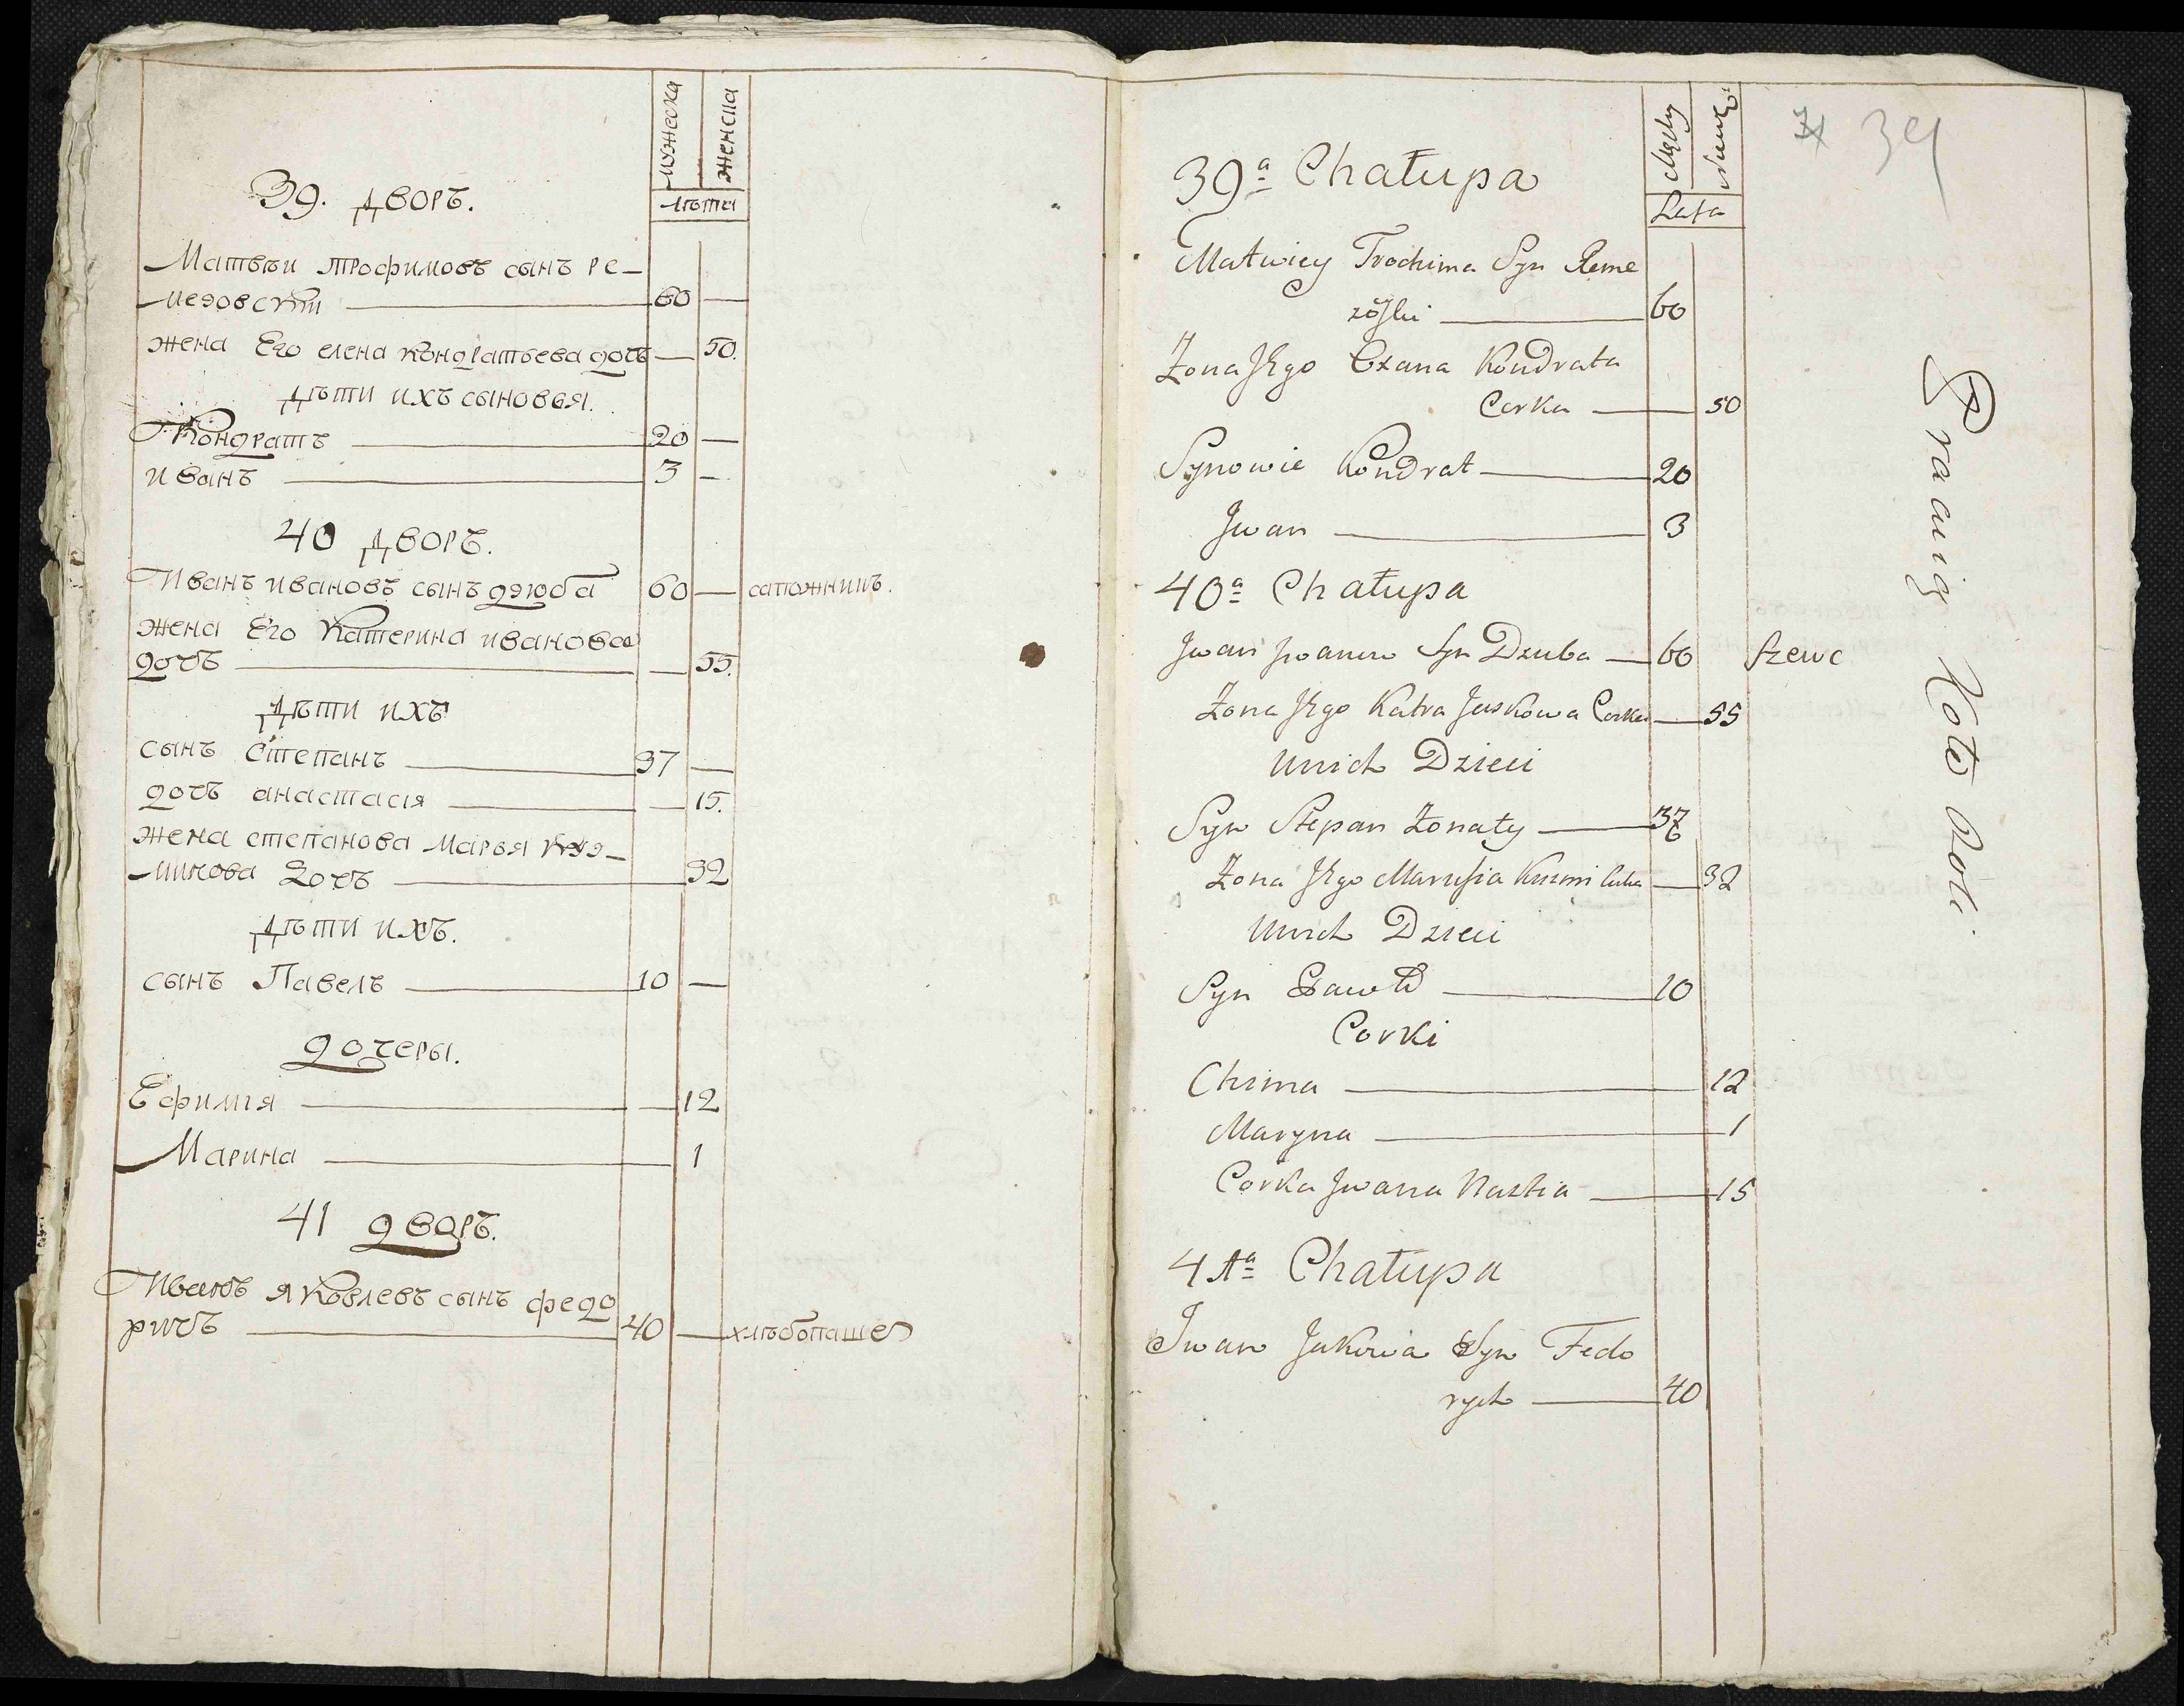 мужеска
женска
лѣта
39. дворъ.
Матвѣи трофимовъ сынъ ре-
мезовскти 60 —
жена Его елена кондратьева дочь — 50.
дѣти ихъ сыновья.
Кондратъ 20 —
иванъ 3 —
40 дворъ.
Иванъ ивановъ сынъ дзюба 60 — сапожникъ.
жена Его Катерина иванова
дочь — 55.
дѣти ихъ
сынъ степанъ 37 —
дочь анастасія — 15.
жена степанова Марья куз-
мичова дочь 32
дѣти ихъ.
сынъ Павелъ 10 —
дочеры.
Ефимія — 12
Марина 1
41 дворъ.
Иванъ яковлевъ сынъ федо
ричъ 40 — хлѣбопашец
39
Męzky
Lata
39ª Chałupa
Matwiey Trochima Syn Reme
zoſki 60
Zona Jego Olana Kondrata
Corka 50
Synowie Kondrat 20
Jwan 3
40ª Chałupa
Jwan Jwanow Syn Dzuba 60 Szewc
Zona Jego Katra Jaskowa Corka 55
Unich Dzieci
Syn Stepan Zonaty 37
Zona Jego Marusia Kuzmi Corka 32
Unich Dzieci
Syn Pawło 10
Corki
Chima 12
Maryna 1
Corka Jwana Nastia 15
41ª Chałupa
Jwan Jakowa Syn Fedo
rych 40